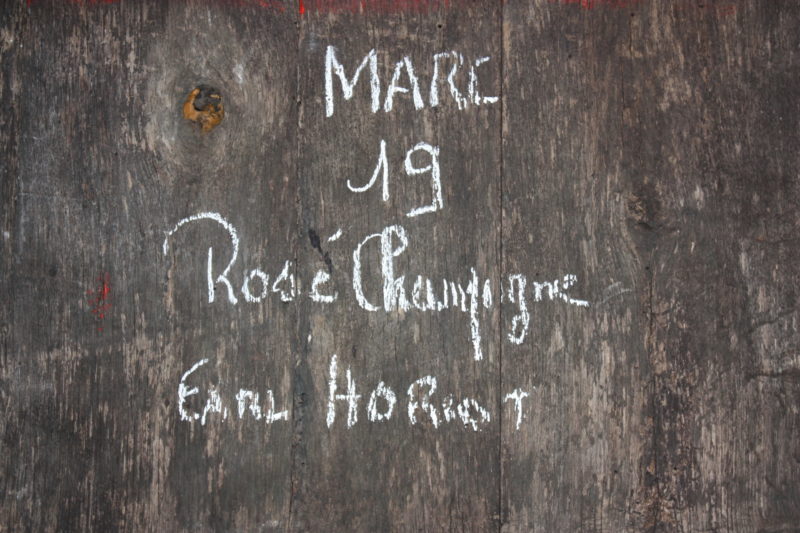 MARC
19
Rosé Champagne
EARL HORIOT